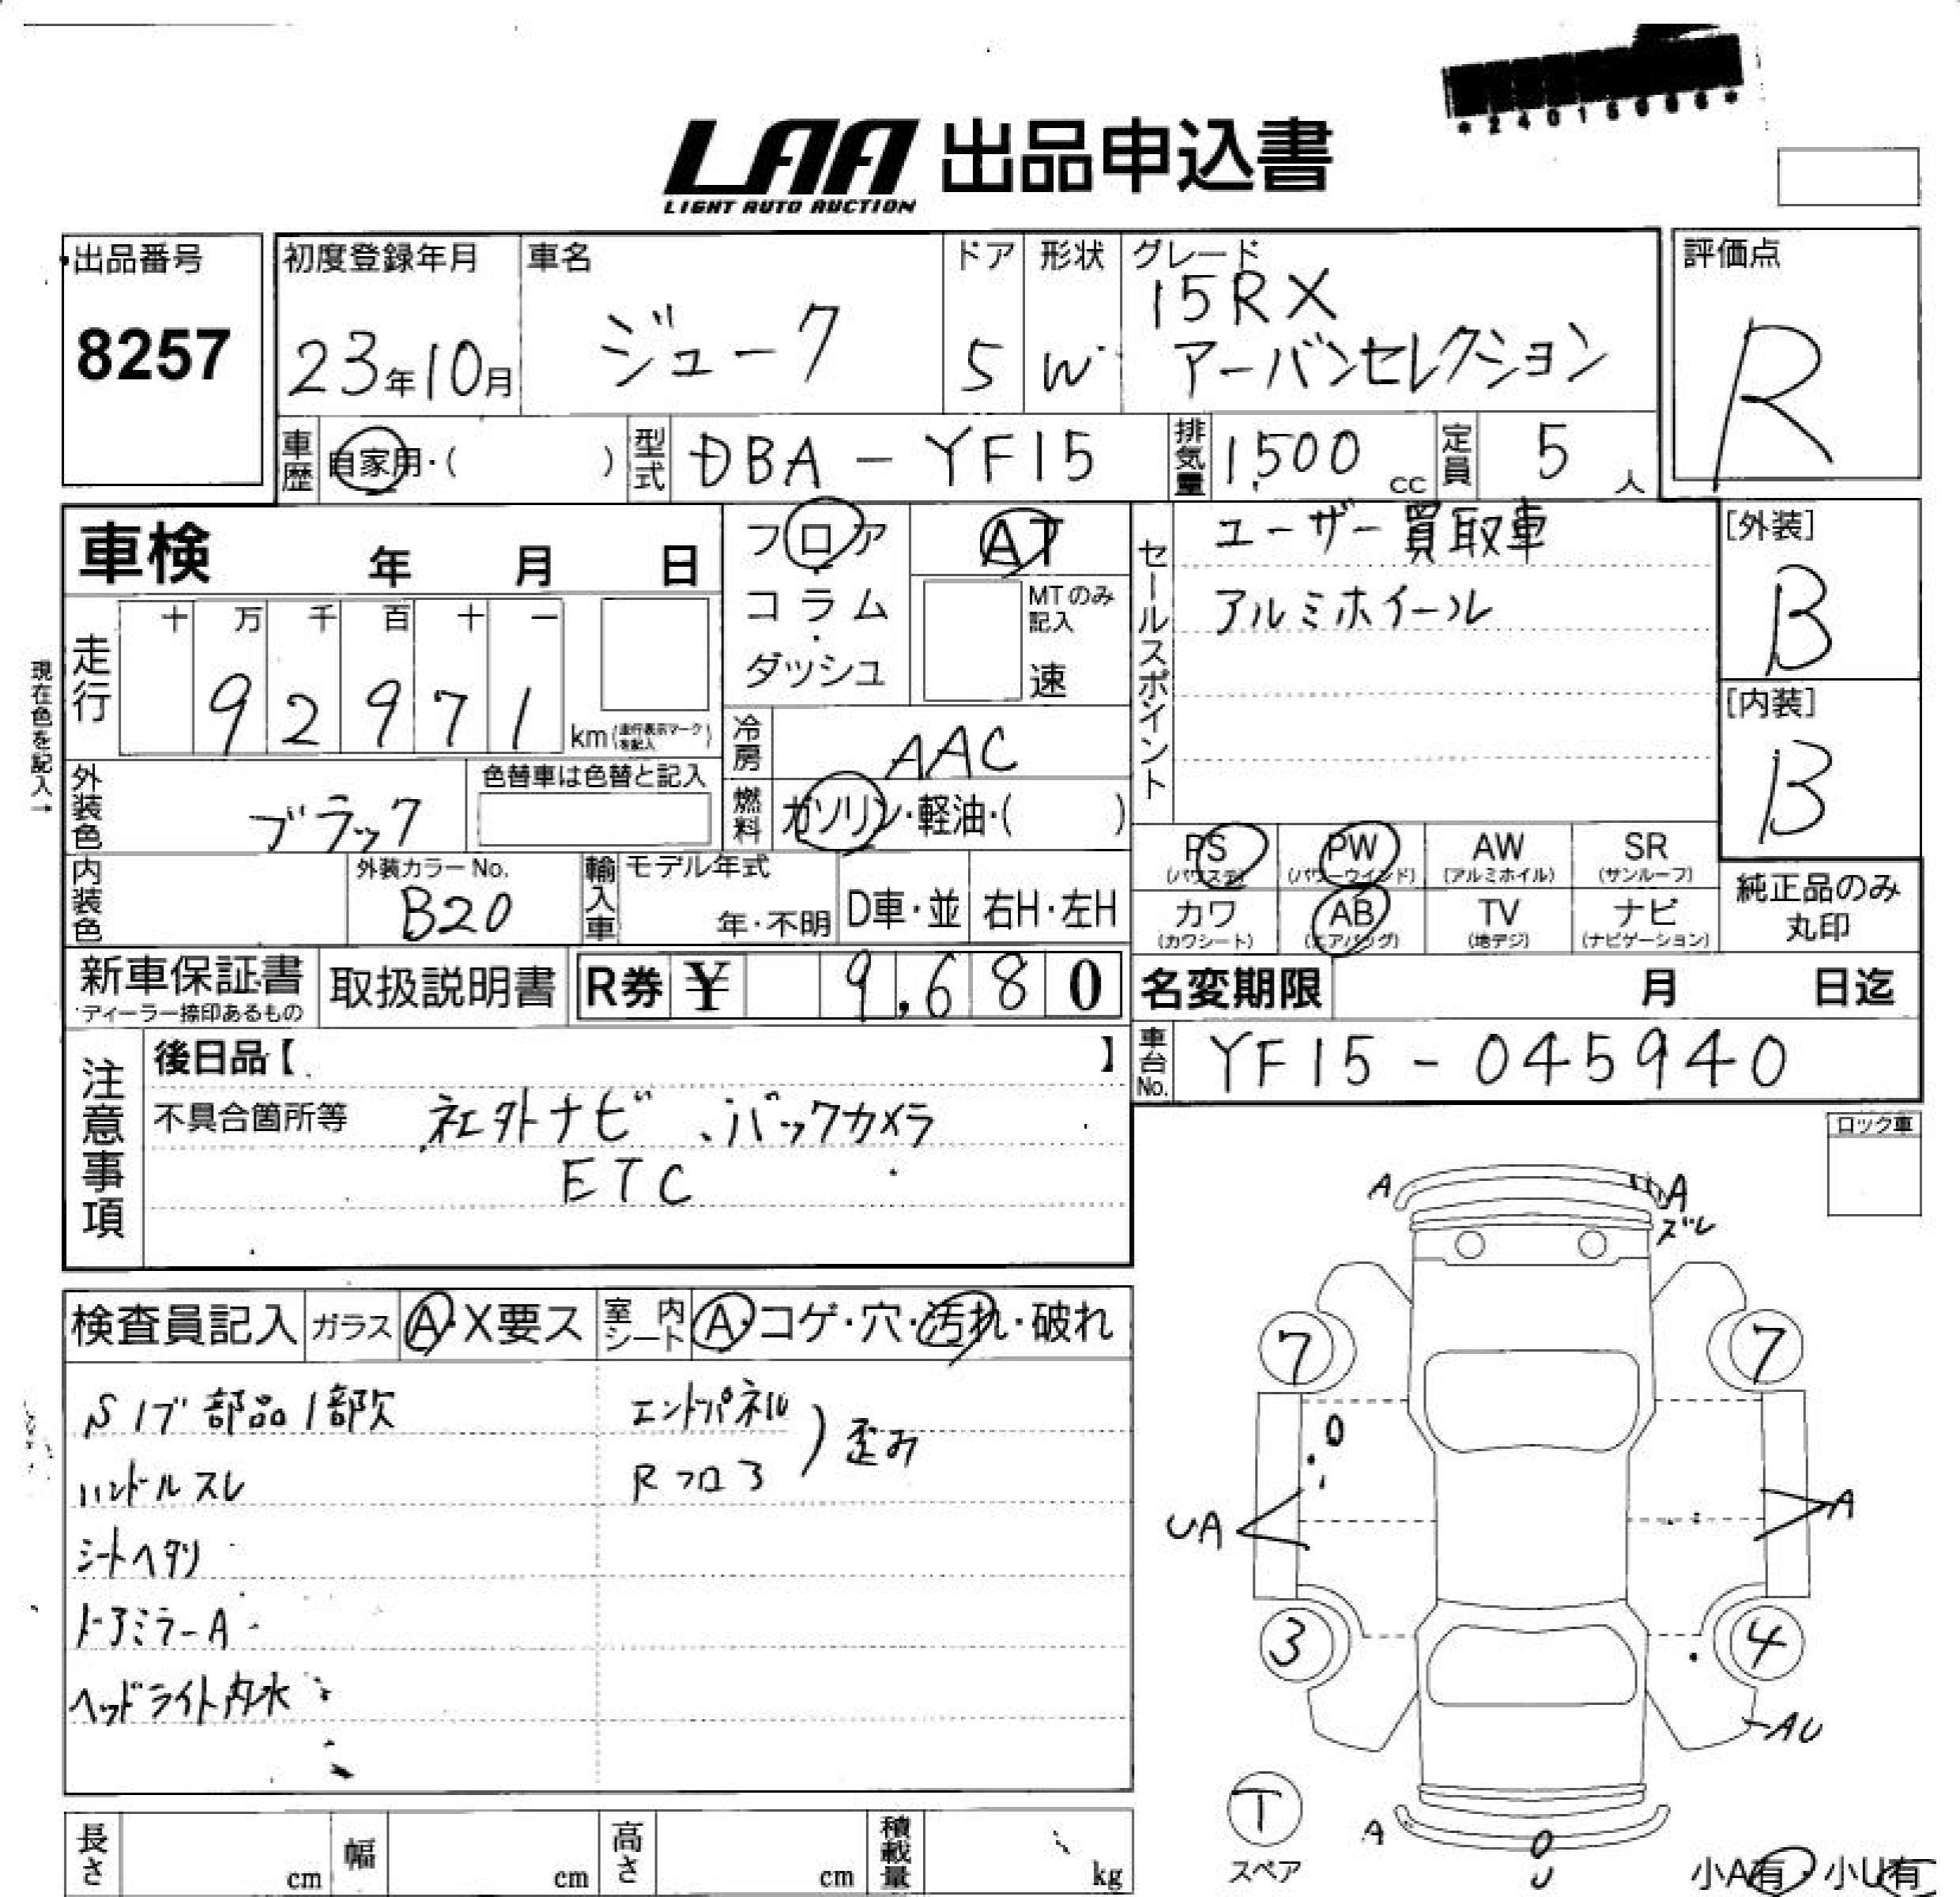 *24015086*
LAA 出品申込書
LIGHT AUTO AUCTION
出品番号
8257
初度登録年月
23年10月
車名
ジューク
ドア
5
形状
W
グレード
15RX
アーバンセレクション
評価点
R
車歴
自家用・( )
型式
DBA-YF15
排気量
1,500 cc
定員
5 人
車検 年 月 日
フロア・コラム・ダッシュ
AT
MTのみ記入
速
セールスポイント
ユーザー買取車
アルミホイール
[外装]
B
[内装]
B
現在色を記入→
走行
十 万 千 百 十 一
9 2 9 7 1 km(走行表示マークを記入)
冷房
AAC
外装色
ブラック
色替車は色替と記入
燃料
ガソリン・軽油・( )
PS (パワステ)
PW (パワーウインド)
AW (アルミホイル)
SR (サンルーフ)
カワ (カワシート)
AB (エアバッグ)
TV (地デジ)
ナビ (ナビゲーション)
純正品のみ丸印
内装色
外装カラーNo.
B20
輸入車
モデル年式
年・不明
D車・並
右H・左H
新車保証書
ディーラー捺印あるもの
取扱説明書
R券 ¥ 9,680
名変期限 月 日迄
車台No.
YF15-045940
注意事項
後日品【 】
不具合箇所等 社外ナビ、バックカメラ
ETC
ロック車
検査員記入
ガラス A・X要ス
室内シート A・コゲ・穴・汚れ・破れ
Sノブ部品1部欠
ハンドルスレ
シートヘタリ
ドアミラーA
ヘッドライト内水
エンドパネル
Rフロア
歪み
A
A
ズレ
7
7
UA
A
3
4
AU
T
スペア
A
U
小A有・小U有
長さ cm
幅 cm
高さ cm
積載量 kg